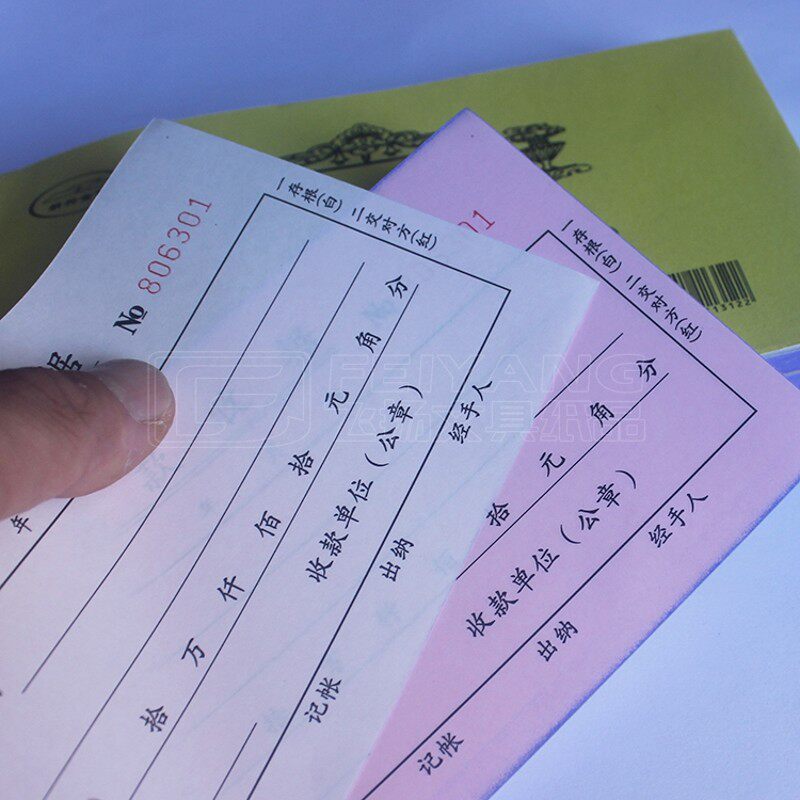 据 № 806301
一存根(白) 二交对方(红)
年
拾 万 仟 佰 拾 元 角 分
收款单位(公章)
记帐 出纳 经手人
01
一存根(白) 二交对方(红)
拾 元 角 分
收款单位(公章)
记帐 出纳 经手人
13122
FEIYANG
文具纸品